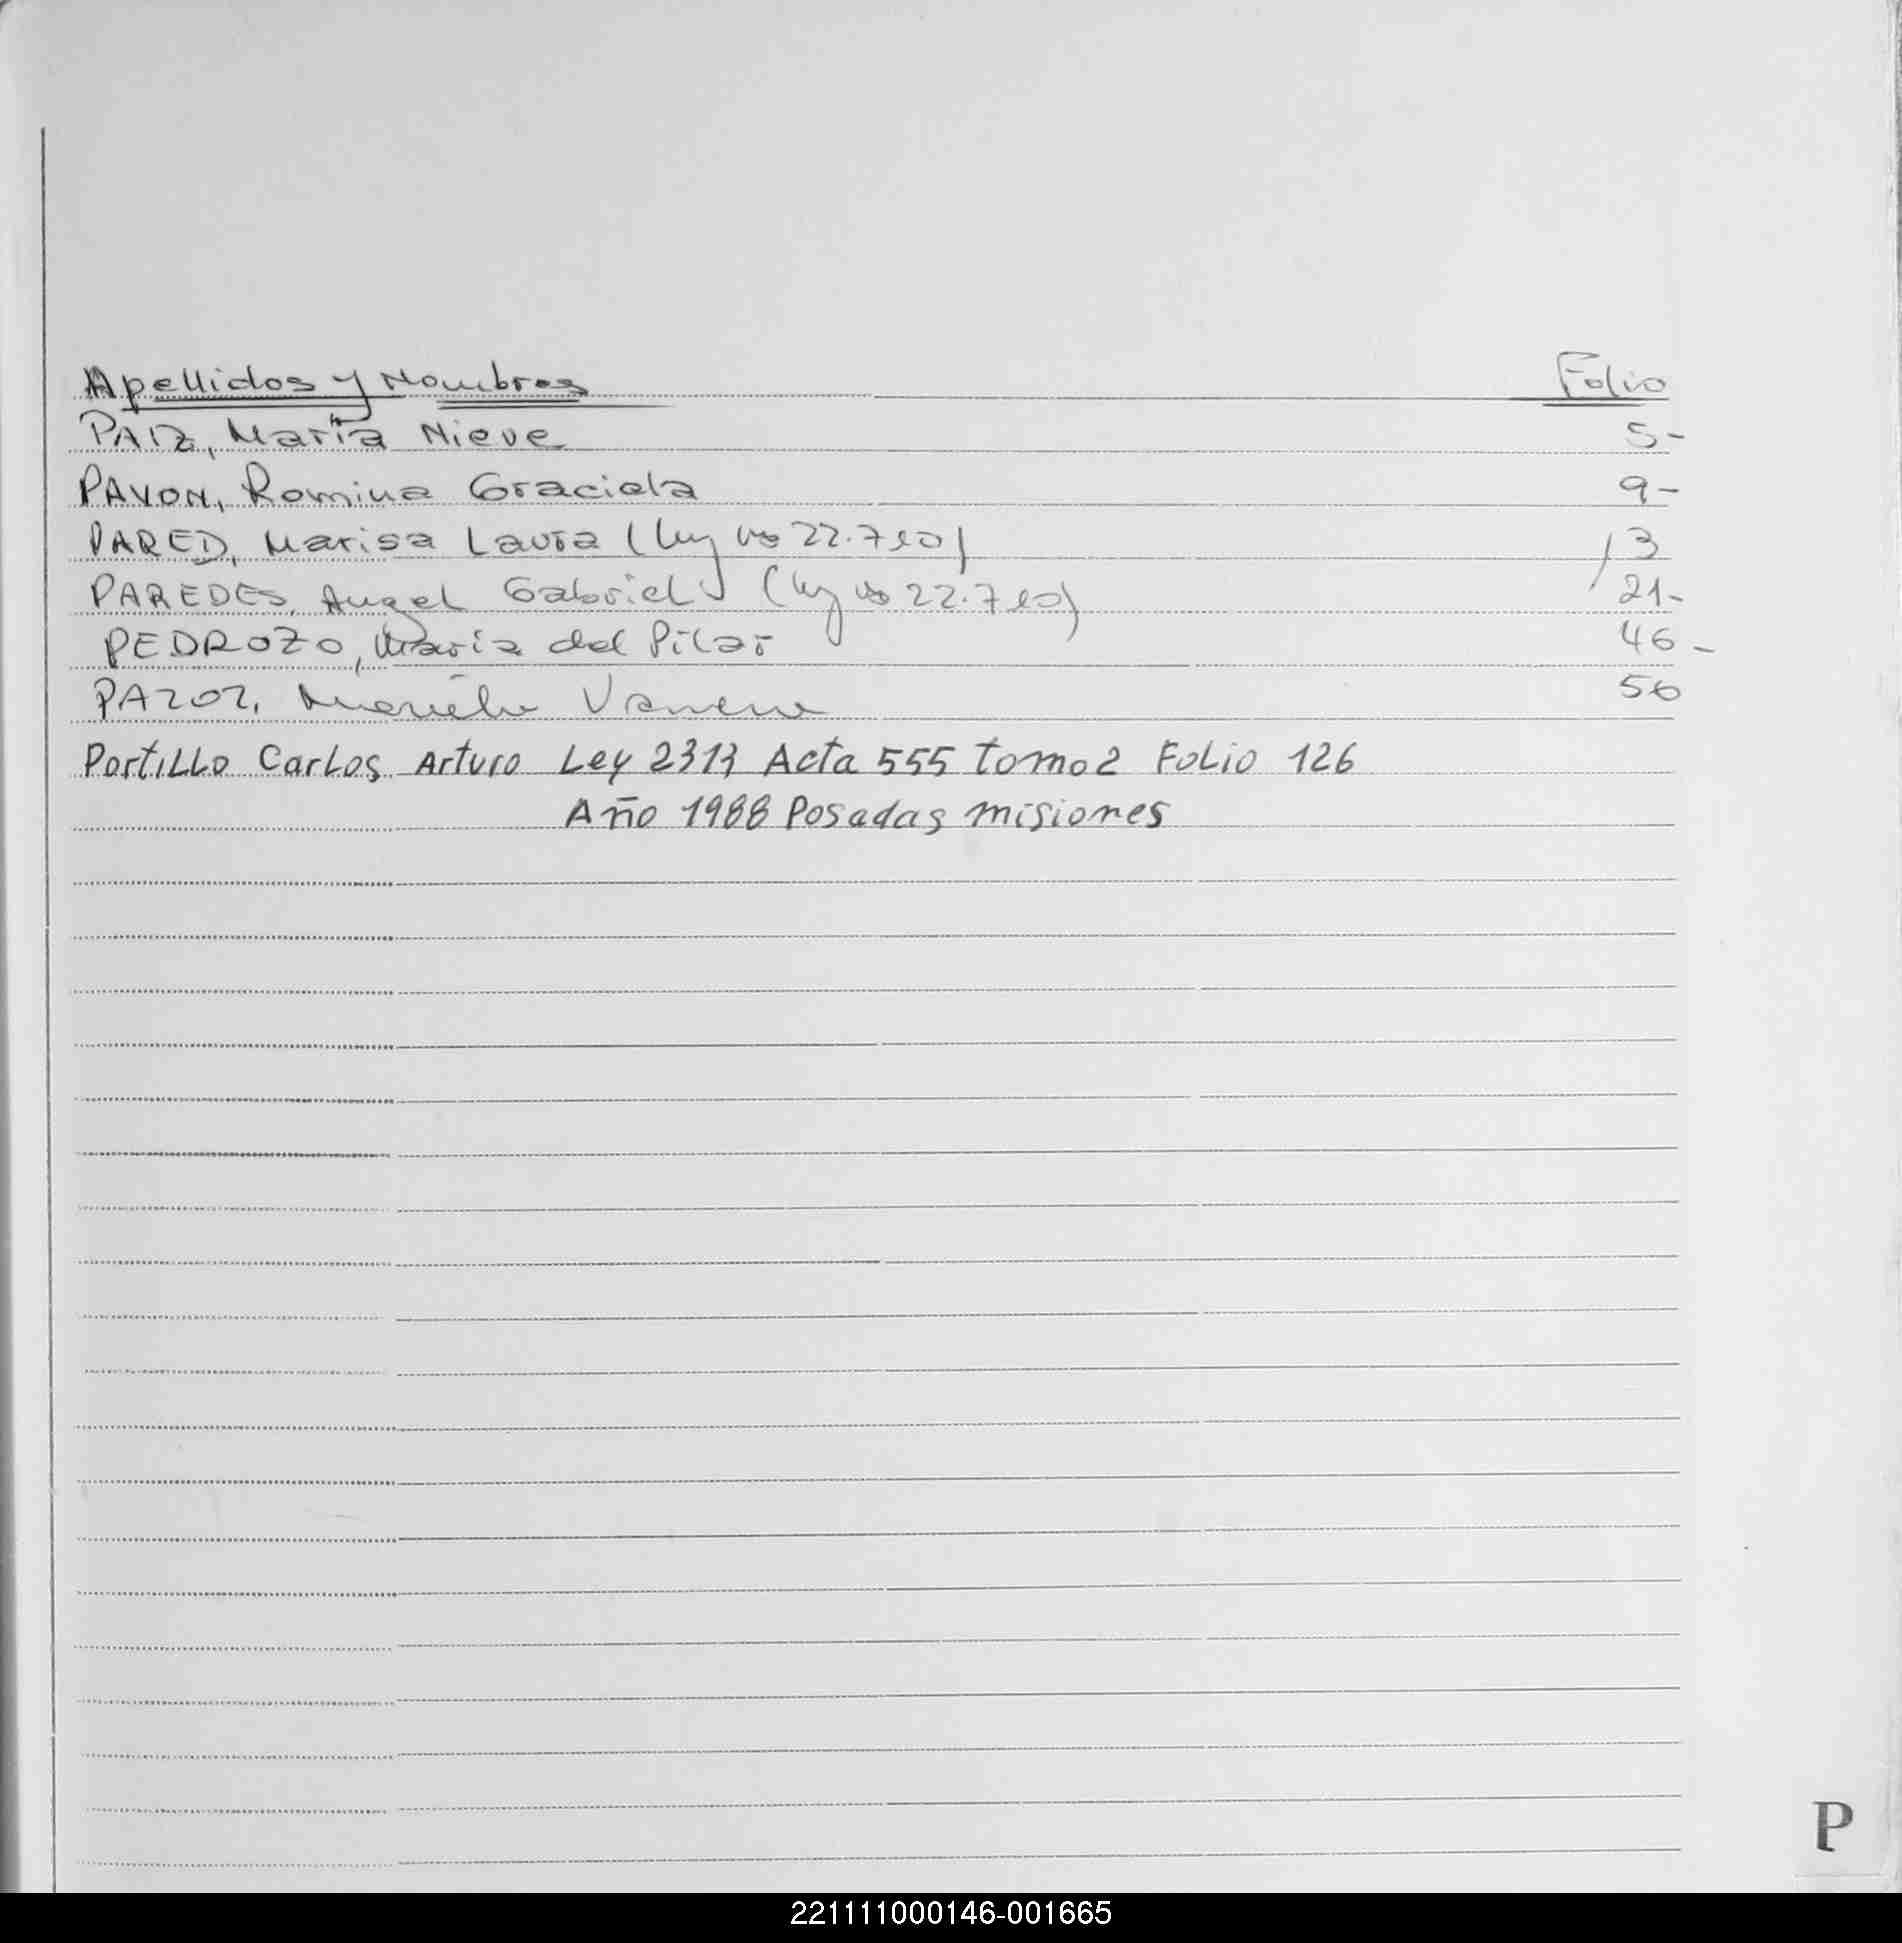 Apellidos y Nombres Folio
PAIZ, María Nieve 5-
PAVON, Romina Graciela 9-
PARED, Marisa Laura (ley no 22.710) 13
PAREDES, Angel Gabriel (ley no 22.710) 21-
PEDROZO, María del Pilar 46-
PAZOZ, Mariela Vanena 56
Portillo Carlos Arturo Ley 2313 Acta 555 tomo 2 Folio 126
Año 1988 Posadas misiones
P
221111000146-001665